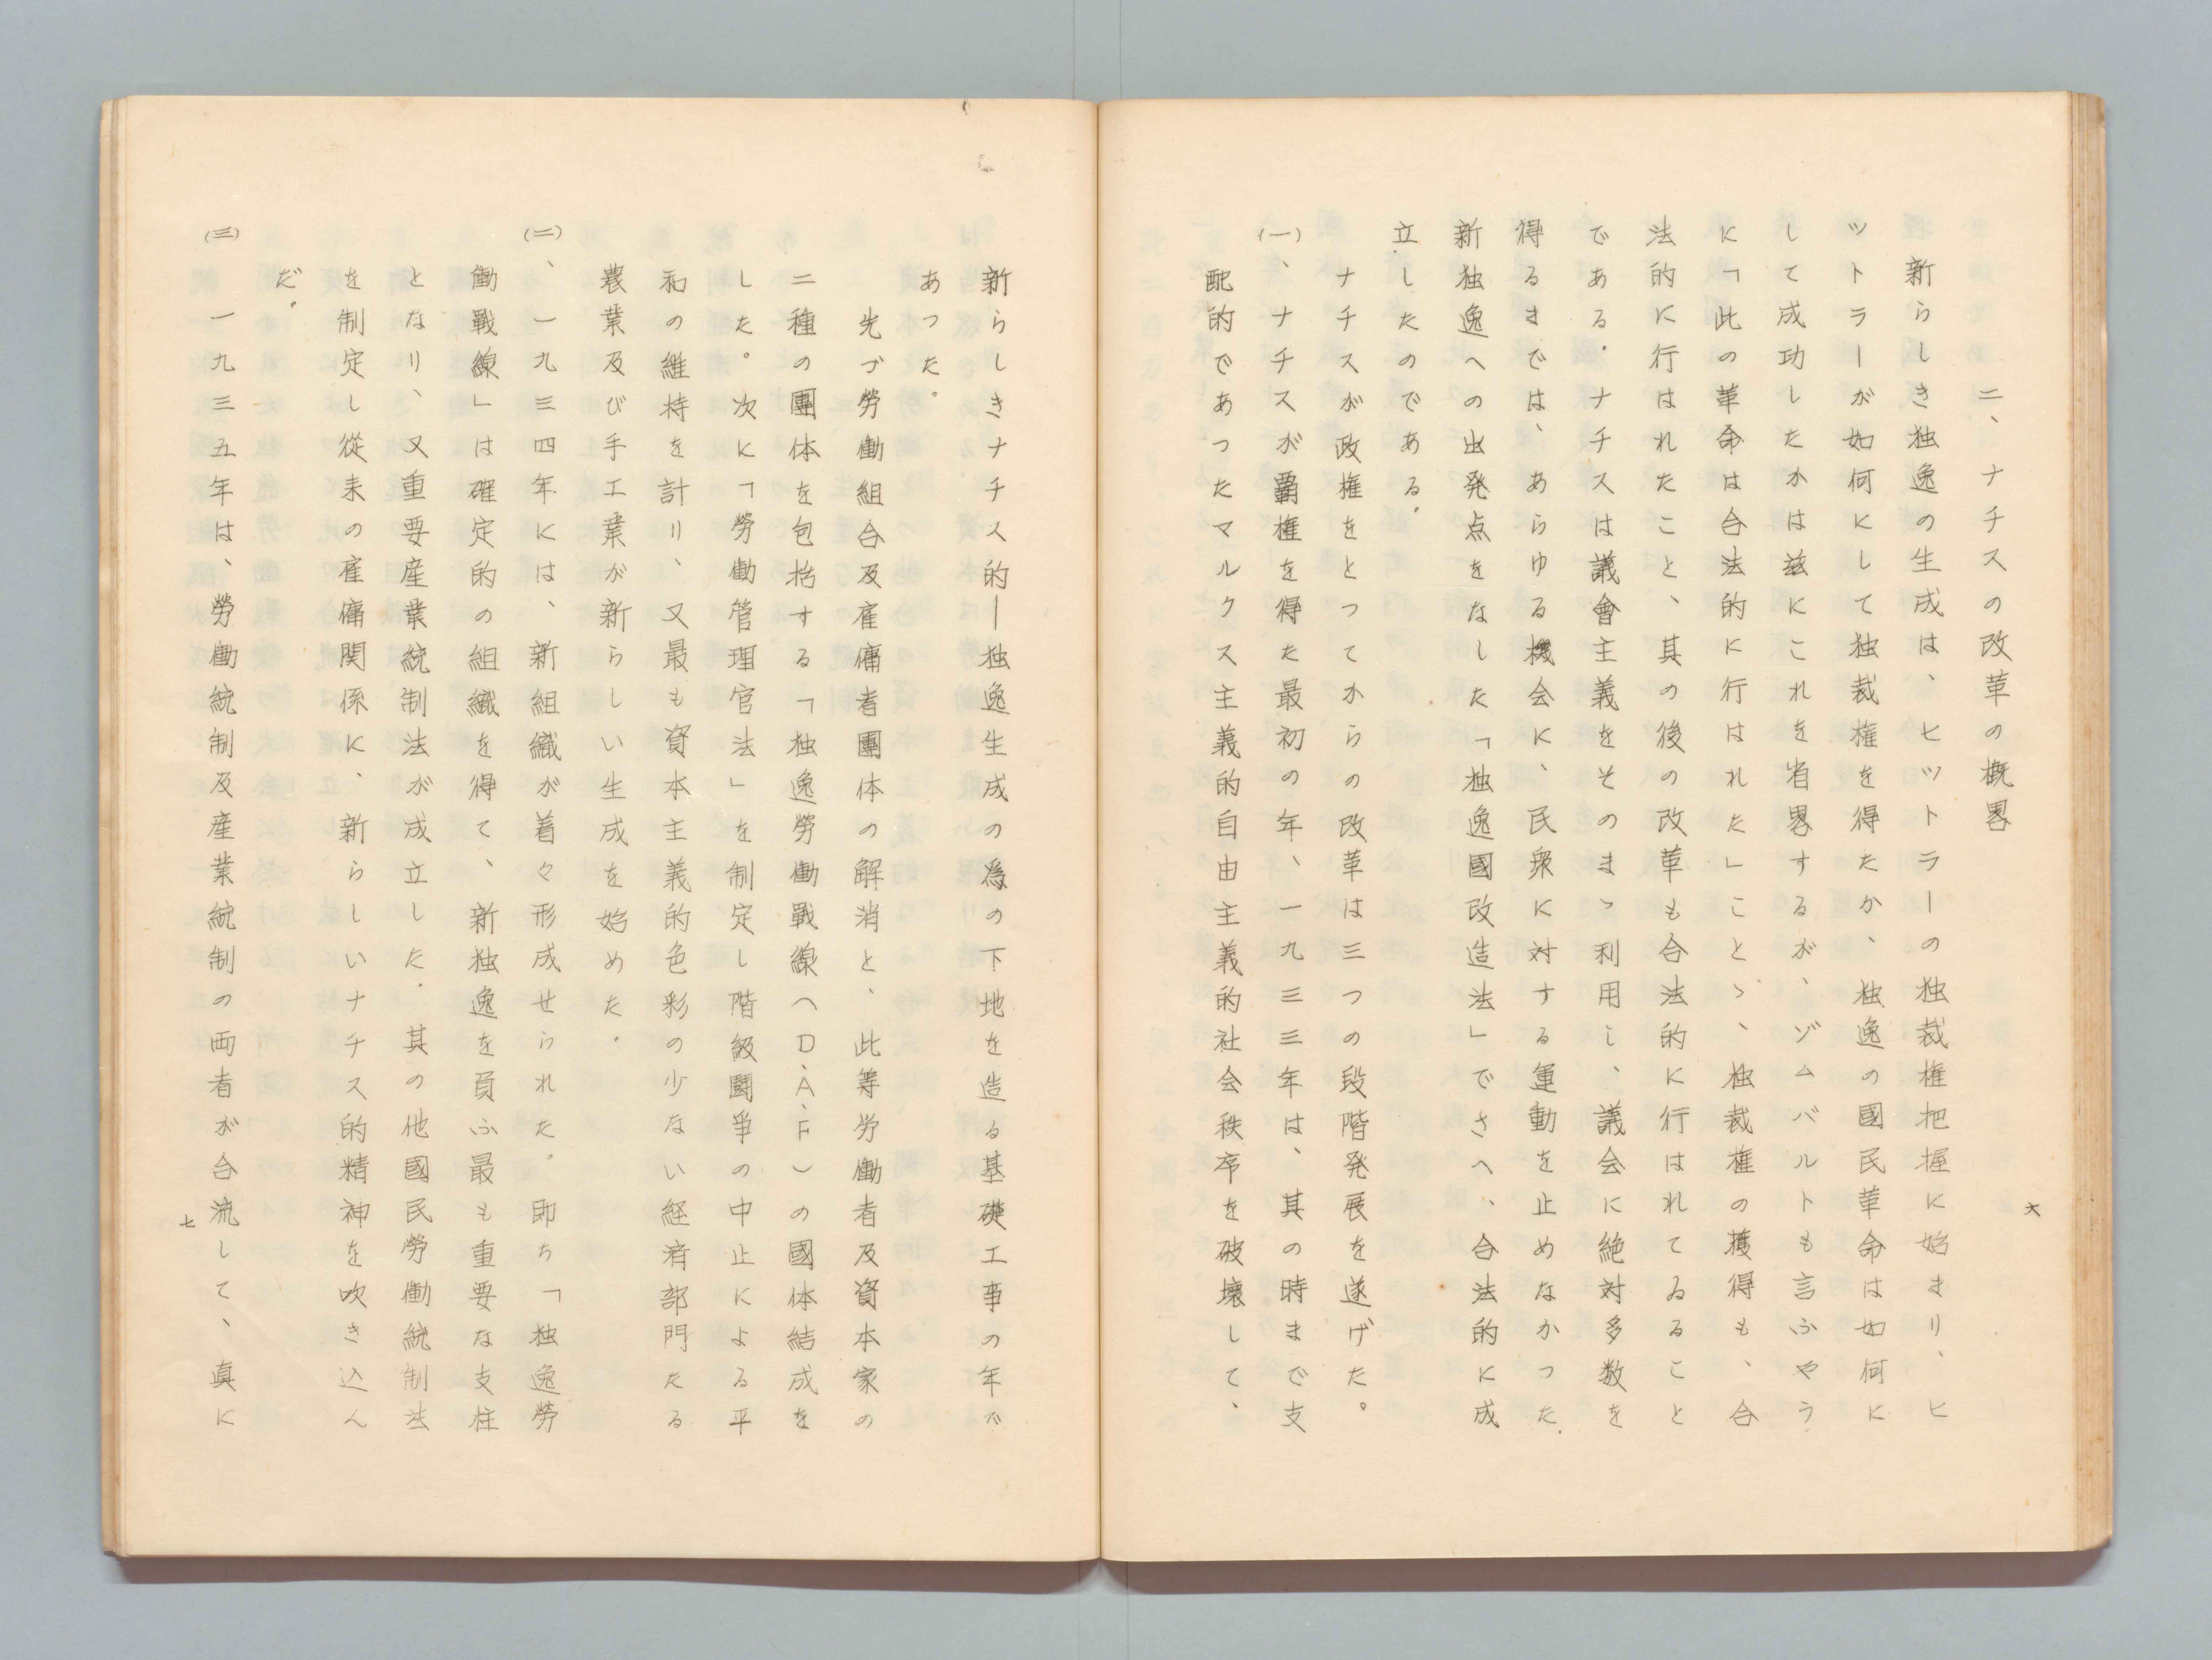 二、ナチスの改革の概畧
新らしき独逸の生成は、ヒットラーの独裁権把握に始まり、ヒ
ットラーが如何にして独裁権を得たか、独逸の國民革命は如何に
して成功したかは兹にこれを省畧するが、ゾムバルトも言ふやう
に「此の革命は合法的に行はれた」ことゝ、独裁権の獲得も、合
法的に行はれたこと、其の後の改革も合法的に行はれてゐること
である。ナチスは議會主義をそのまゝ利用し、議会に絶対多数を
得るまでは、あらゆる機会に、民衆に対する運動を止めなかった
新独逸への出発点をなした「独逸國改造法」でさへ、合法的に成
立したのである。
ナチスが政権をとつてからの改革は三つの段階発展を遂げた。
(一)、ナチスが覇権を得た最初の年、一九三三年は、其の時まで支
配的であつたマルクス主義的自由主義的社会秩序を破壊して、
六
新らしきナチス的―独逸生成の爲の下地を造る基礎工事の年で
あつた。
先づ勞働組合及雇傭者團体の解消と、此等労働者及資本家の
二種の團体を包括する「独逸勞働戰線(D、A、F)の國体結成を
した。次に「勞働管理官法」を制定し階級鬪爭の中止による平
和の維持を計り、又最も資本主義的色彩の少ない経済部門たる
農業及び手工業が新らしい生成を始めた。
(二)、一九三四年には、新組織が着々形成せられた。即ち「独逸勞
働戰線」は確定的の組織を得て、新独逸を負ふ最も重要な支柱
となり、又重要産業統制法が成立した。其の他國民勞働統制法
を制定し從来の雇傭関係に、新らしいナチス的精神を吹き込ん
だ。
(三)一九三五年は、勞働統制及産業統制の両者が合流して、真に
七